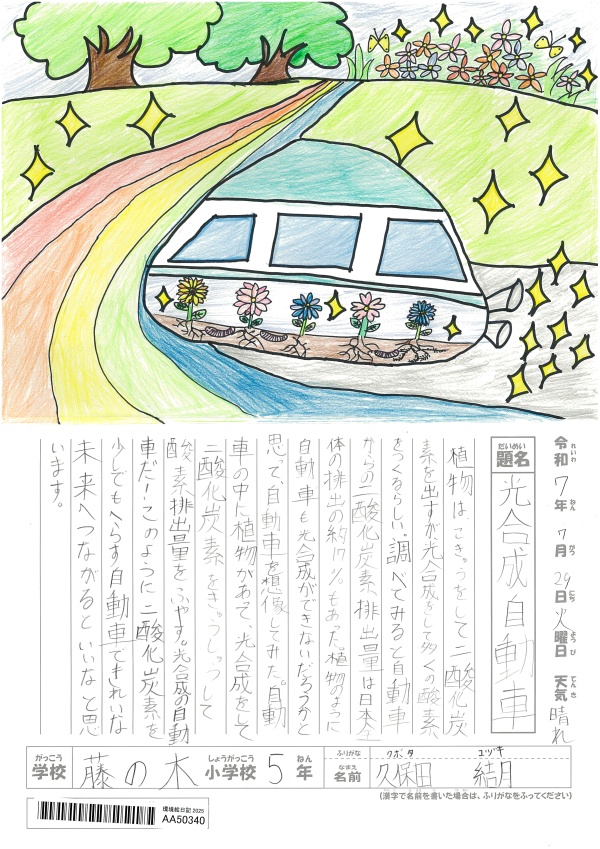 令和7年7月29日火曜日 天気 晴れ
れいわ ねん がつ にち ようび てんき
だいめい
題名 光合成自動車
植物は、こきゅうをして二酸化炭
素を出すが光合成をして多くの酸素
をつくるらしい。調べてみると自動車
からの二酸化炭素排出量は日本全
体の排出の約17%もあった。植物のように
自動車も光合成ができないだろうかと
思って、自動車を想像してみた。自動
車の中に植物があって、光合成をして
二酸化炭素をきゅうしゅうして
酸素排出量をふやす。光合成の自動
車だ!このように二酸化炭素を
少しでもへらす自動車できれいな
未来へつながるといいなと思
います。
がっこう しょうがっこう ねん
学校 藤の木 小学校 5年
ふりがな クボタ ユヅキ
なまえ
名前 久保田 結月
(漢字で名前を書いた場合は、ふりがなをふってください)
環境絵日記 2025
AA50340